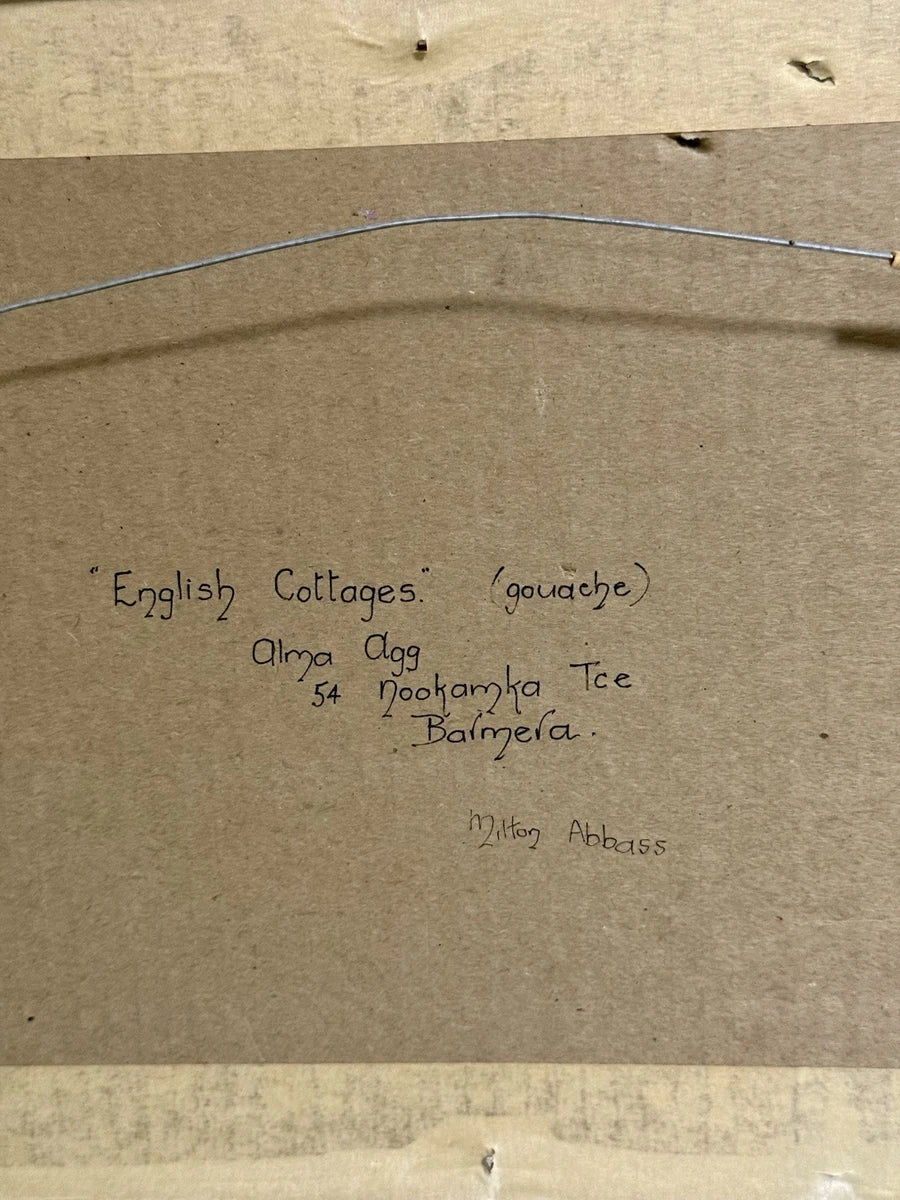 "English Cottages." (gouache)
Alma Agg
54 Nookamka Tce
Barmera.
Milton Abbass